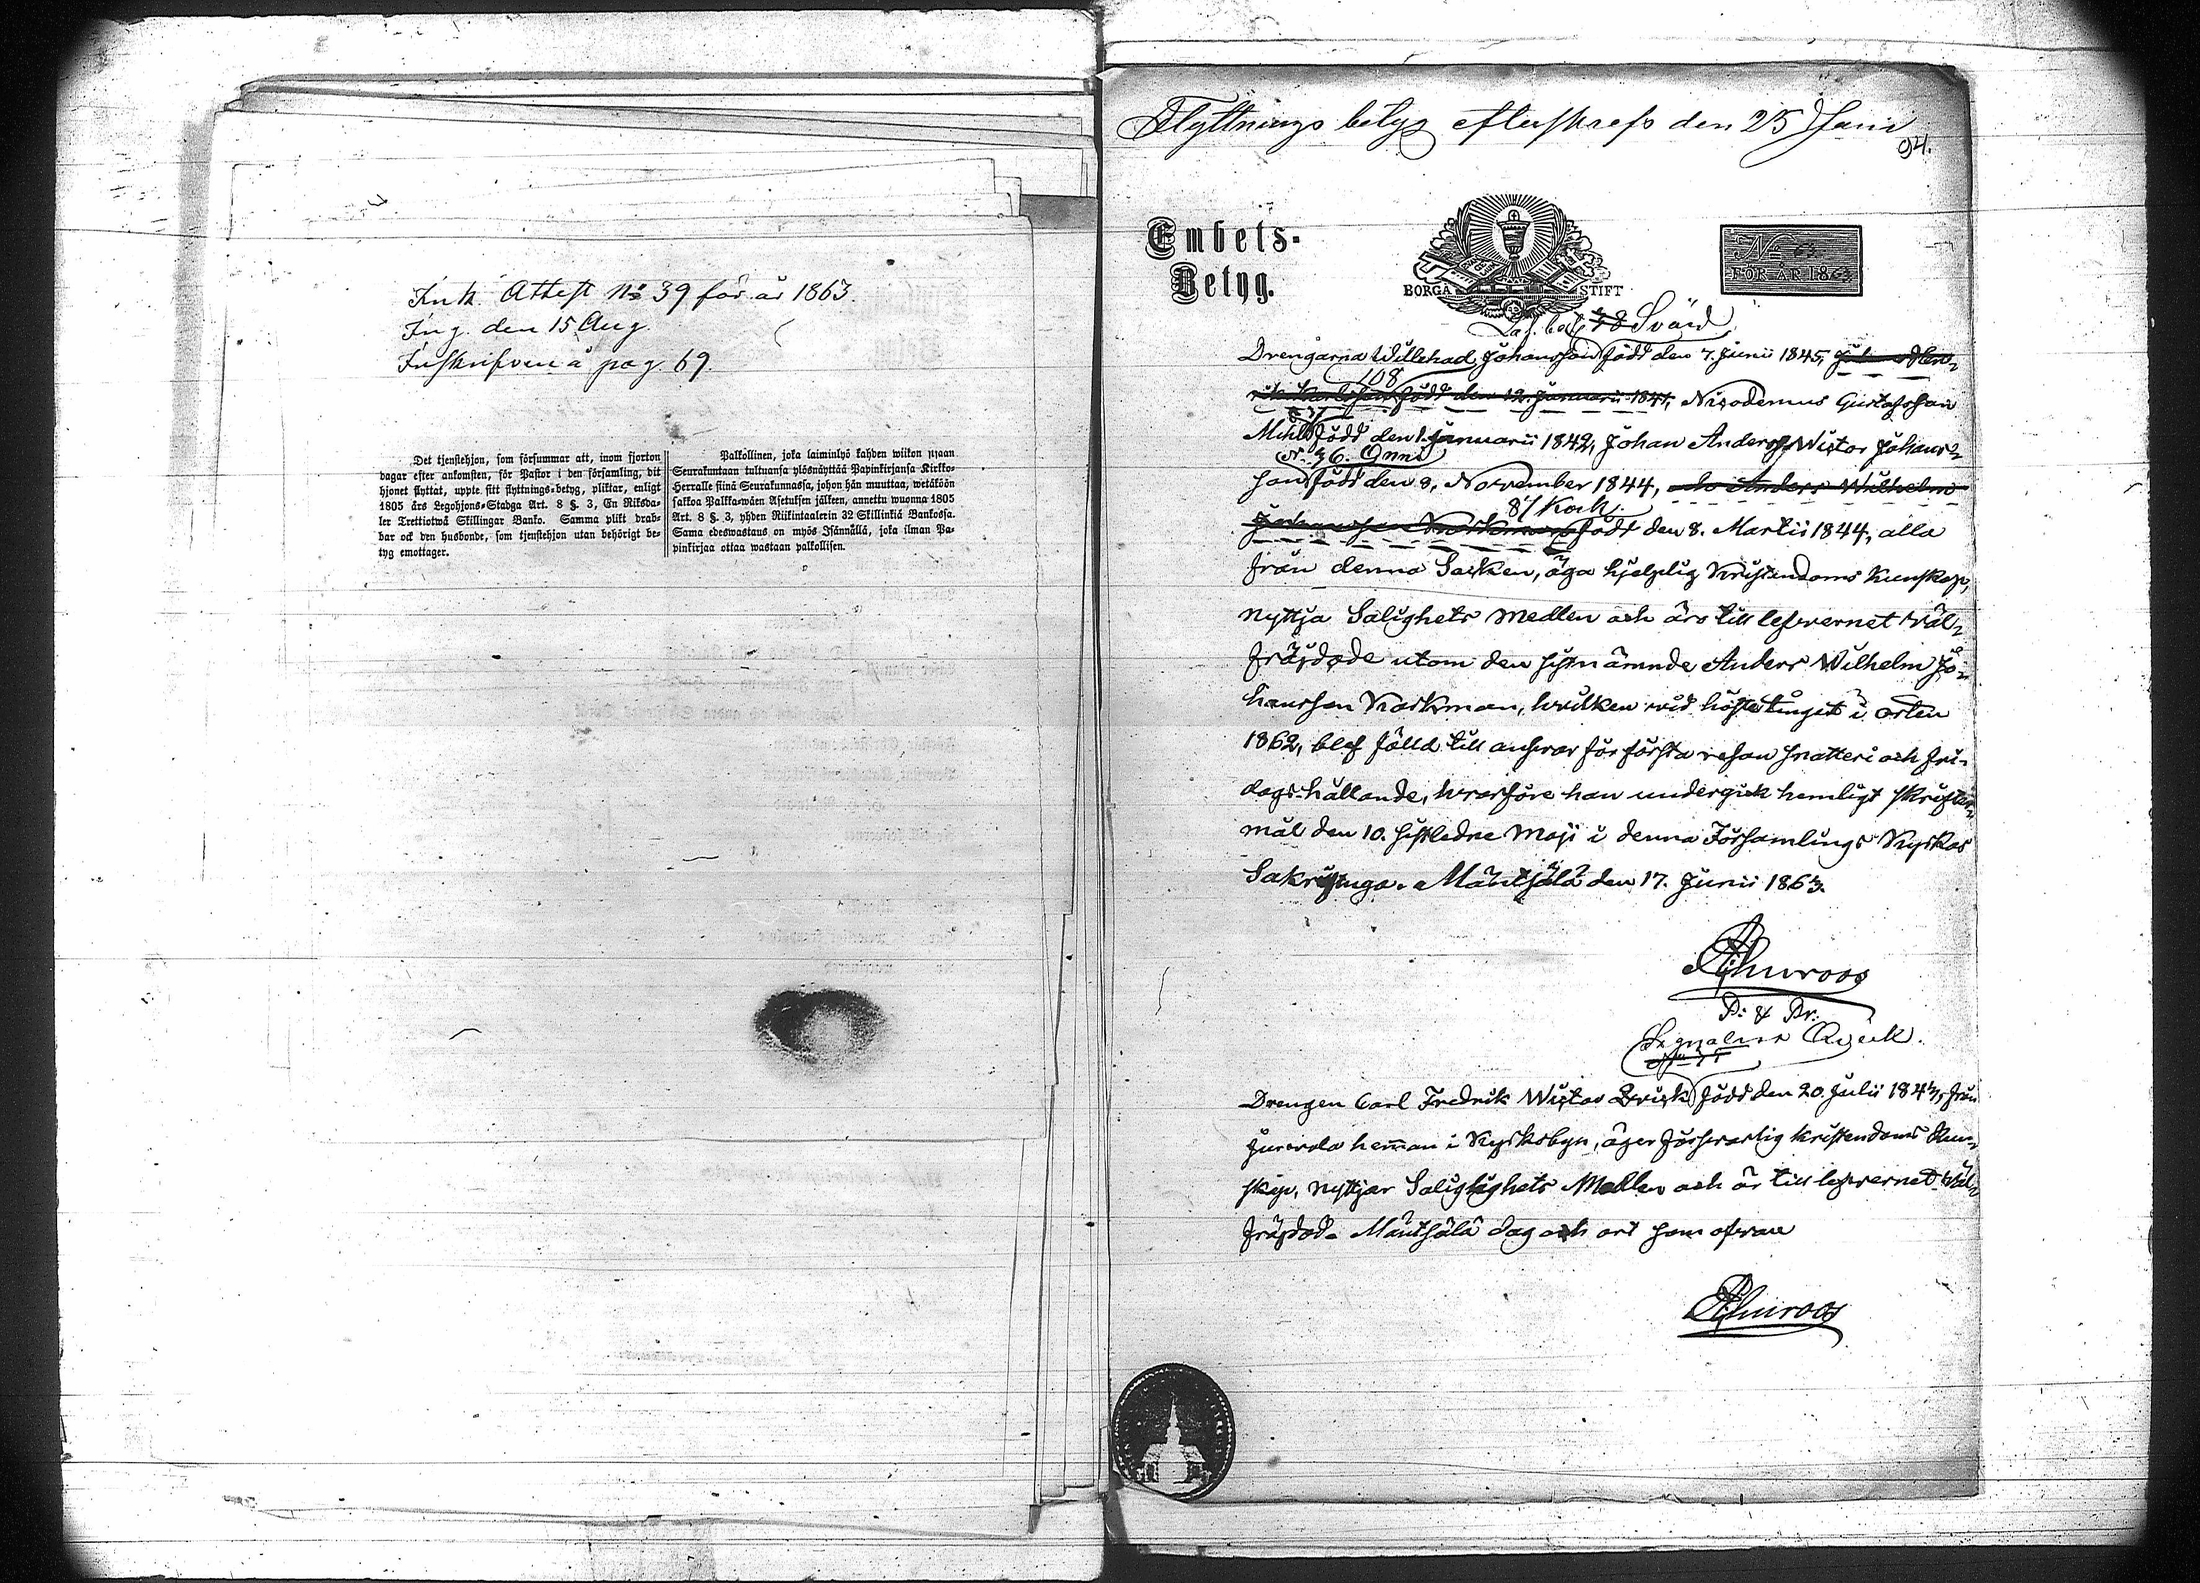 Ink. Attest No 39 för år 1863.
Ing. den 15 Aug.
Inskrifven å pag. 69.
Det tjenstehjon, som försummar att, inom fjorton
dagar efter ankomsten, för Pastor i den församling, dit
hjonet flyttat, uppte sitt flyttnings-betyg, pliktar, enligt
1805 års Legohjons-Stadga Art. 8 §. 3, En Riksda-
ler Trettiotwå Skillingar Banko. Samma plikt drab-
bar ock den husbonde, som tjenstehjon utan behörigt be-
tyg emottager.
Palkollinen, joka laiminlyö kahden wiikon sisään
Seurakuntaan tultuansa ylösnäyttää Papinkirjansa Kirkko-
Herralle siinä Seurakunnassa, johon hän muuttaa, wetäköön
sakkoa Palkka-wäen Asetuksen jälkeen, annettu wuonna 1805
Art. 8 §. 3, yhden Riikintaalerin 32 Skillinkiä Bankossa.
Sama edeswastaus on myös Isännällä, joka ilman Pa-
pinkirjaa ottaa wastaan palkollisen.
Flyttnings betyg efterskrefs den 25 Juni
94.
Embets-
Betyg.
BORGÅ STIFT
No 63.
FÖR ÅR 1863
78 Svärd
Drengarna Willehad Johansson född den 7. Junii 1845,
108
född den 12. Januarii 1841, Nicodemus Gustafsson
född den 1. Januarii 1842, Johan Anders Wictor Johans-
No 36. Onni
son född den 8. November 1844, och Anders Wilhelm
87 Koch.
Johansson född den 8. Martii 1844, alla
från denna Socken, äga hjelplig Kristendoms kunskap,
nyttja Salighets Medlen och äro till lefvernet väl-
frägdade utom den sistnämnde Anders Wilhelm Jo-
hansson Korkman, hvilken vid höstetinget i orten
1862, blef fälld till ansvar för första resan snatteri och fri-
dags-hållande, hvarföre han undergick hemligt skrifter-
mål den 10. sistledne Maji i denna Församlings Kyrkas
Sakristiga. Mäntsälä den 17. Junii 1863.
P: & Pr.
Signalist Qvick.
Drengen Carl Fredrik Wictor Qvick född den 20. Julii 1843, från
Jurvala hemman i Kyrkobyn, äger försvarlig kristendoms kun-
skap, nyttjar Salighets Medlen och är till lefvernet väl-
frägdad. Mäntsälä dag och ort som ofvan